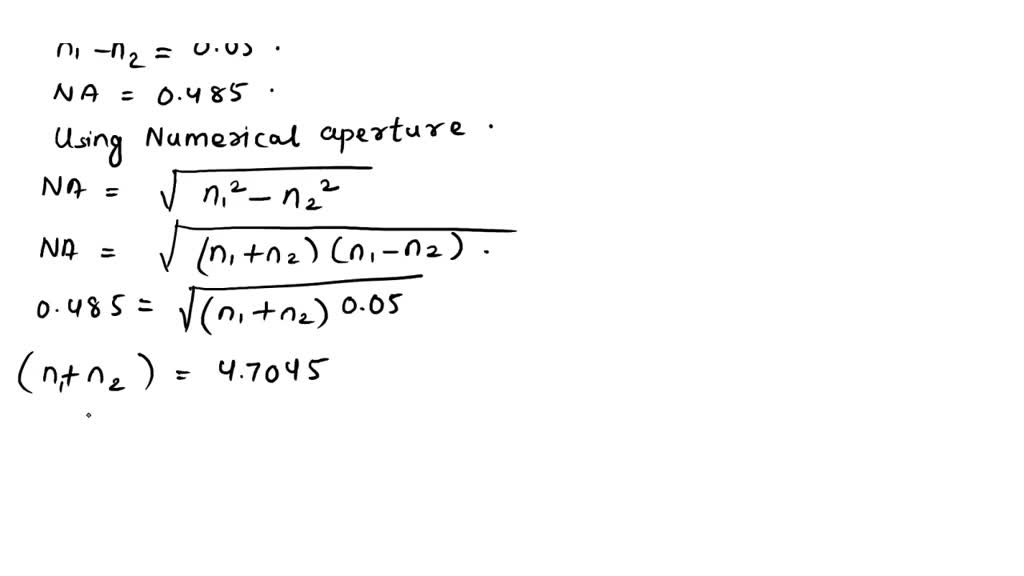 n₁ - n₂ = 0.05 .
NA = 0.485 .
Using Numerical aperture .
NA = √(n₁² - n₂²)
NA = √((n₁ + n₂) (n₁ - n₂)) .
0.485 = √((n₁ + n₂) 0.05)
(n₁ + n₂) = 4.7045